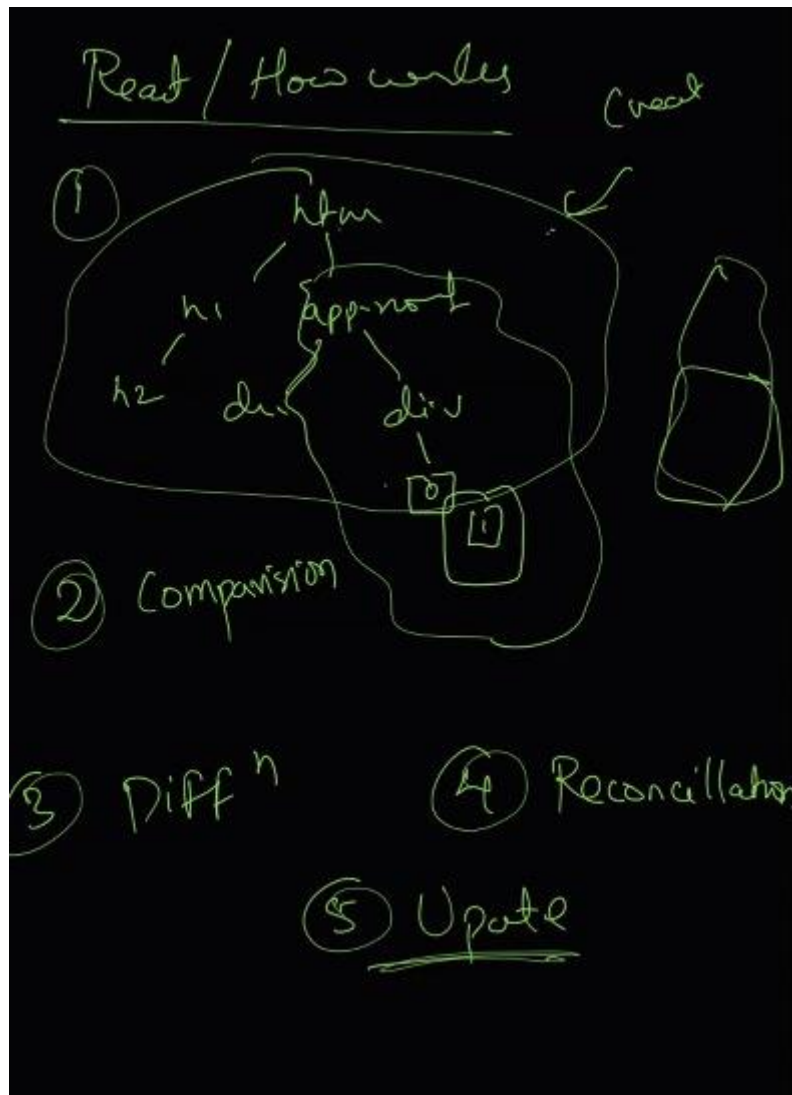 React / How works
Creat
①
htm
h1 app-root
h2 div div
0
1
② Comparision
③ Diff n
④ Reconcillation
⑤ Upate